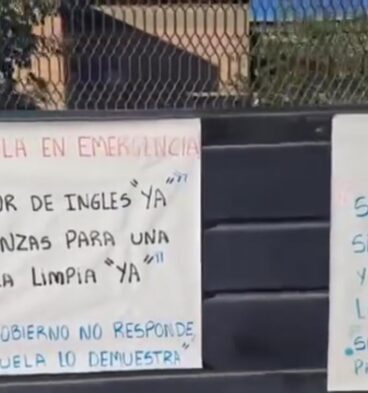 LA EN EMERGENCIA
OR DE INGLES "YA"
NZAS PARA UNA
A LIMPIA "YA"
OBIERNO NO RESPONDE,
UELA LO DEMUESTRA"
S
S
Y
L
S
PA